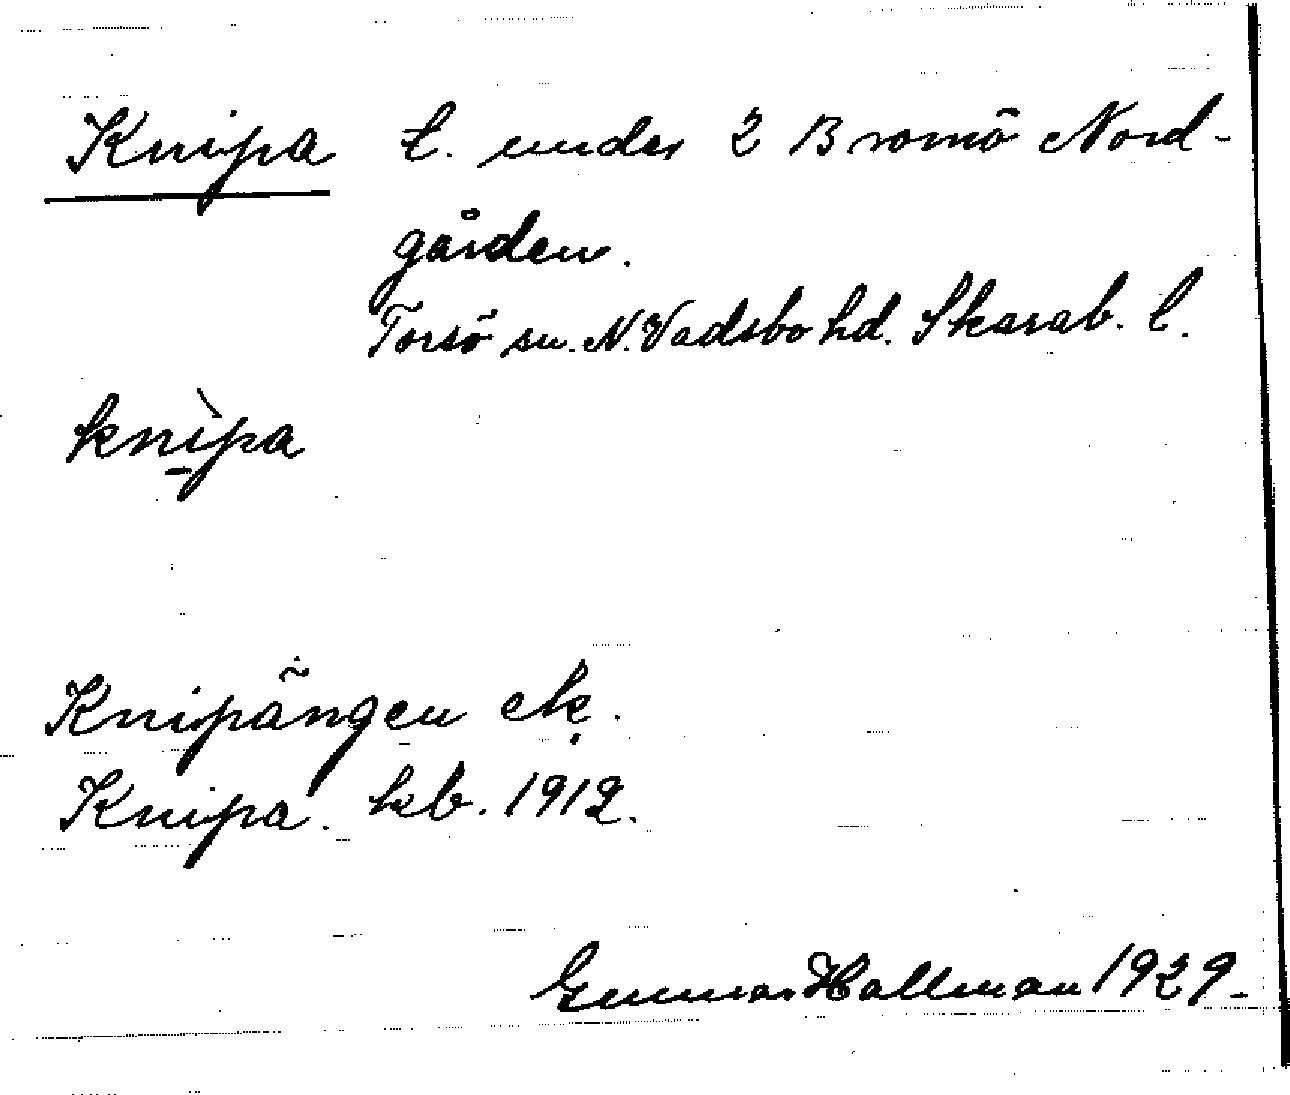 Knipa t. under 2 Bromö Nord-
gården.
Torsö sn. N. Vadsbo hd. Skarab. l.
knìpa
Knipängen ek.
Knipa. kb. 1912.
Gunnar Hallman 1929.